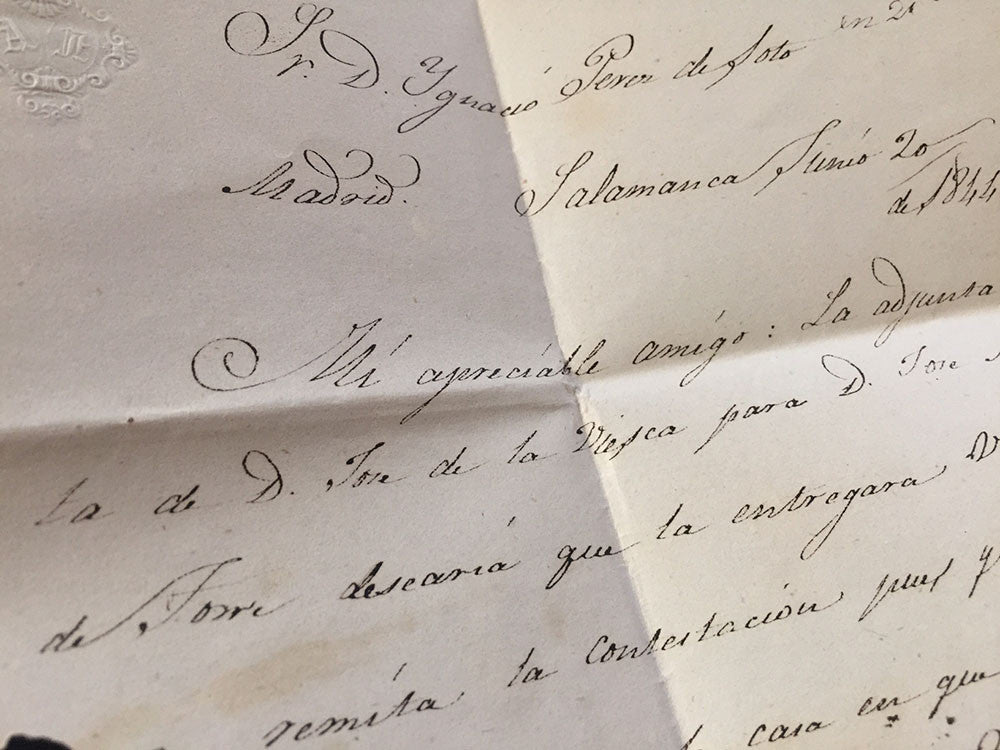 Sr. D. Ygnació Perez de Soto en 21
Madrid. Salamanca Junió 20
de 1844
Mi apreciáble amigo: La adjunta
ta de D. Jose de la Viesca para D. Jose
de Torre desearia que la entregara V
remita la contestación pues
casa en que